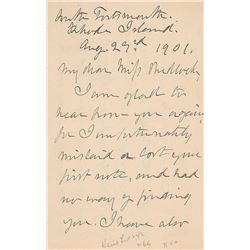 South Portsmouth.
Rhode Island.
Aug. 29th 1901.
My dear Miss
I am glad to
hear from you again,
for I unfortunately
mislaid or lost your
first note, and had
no way of finding
you. I have also